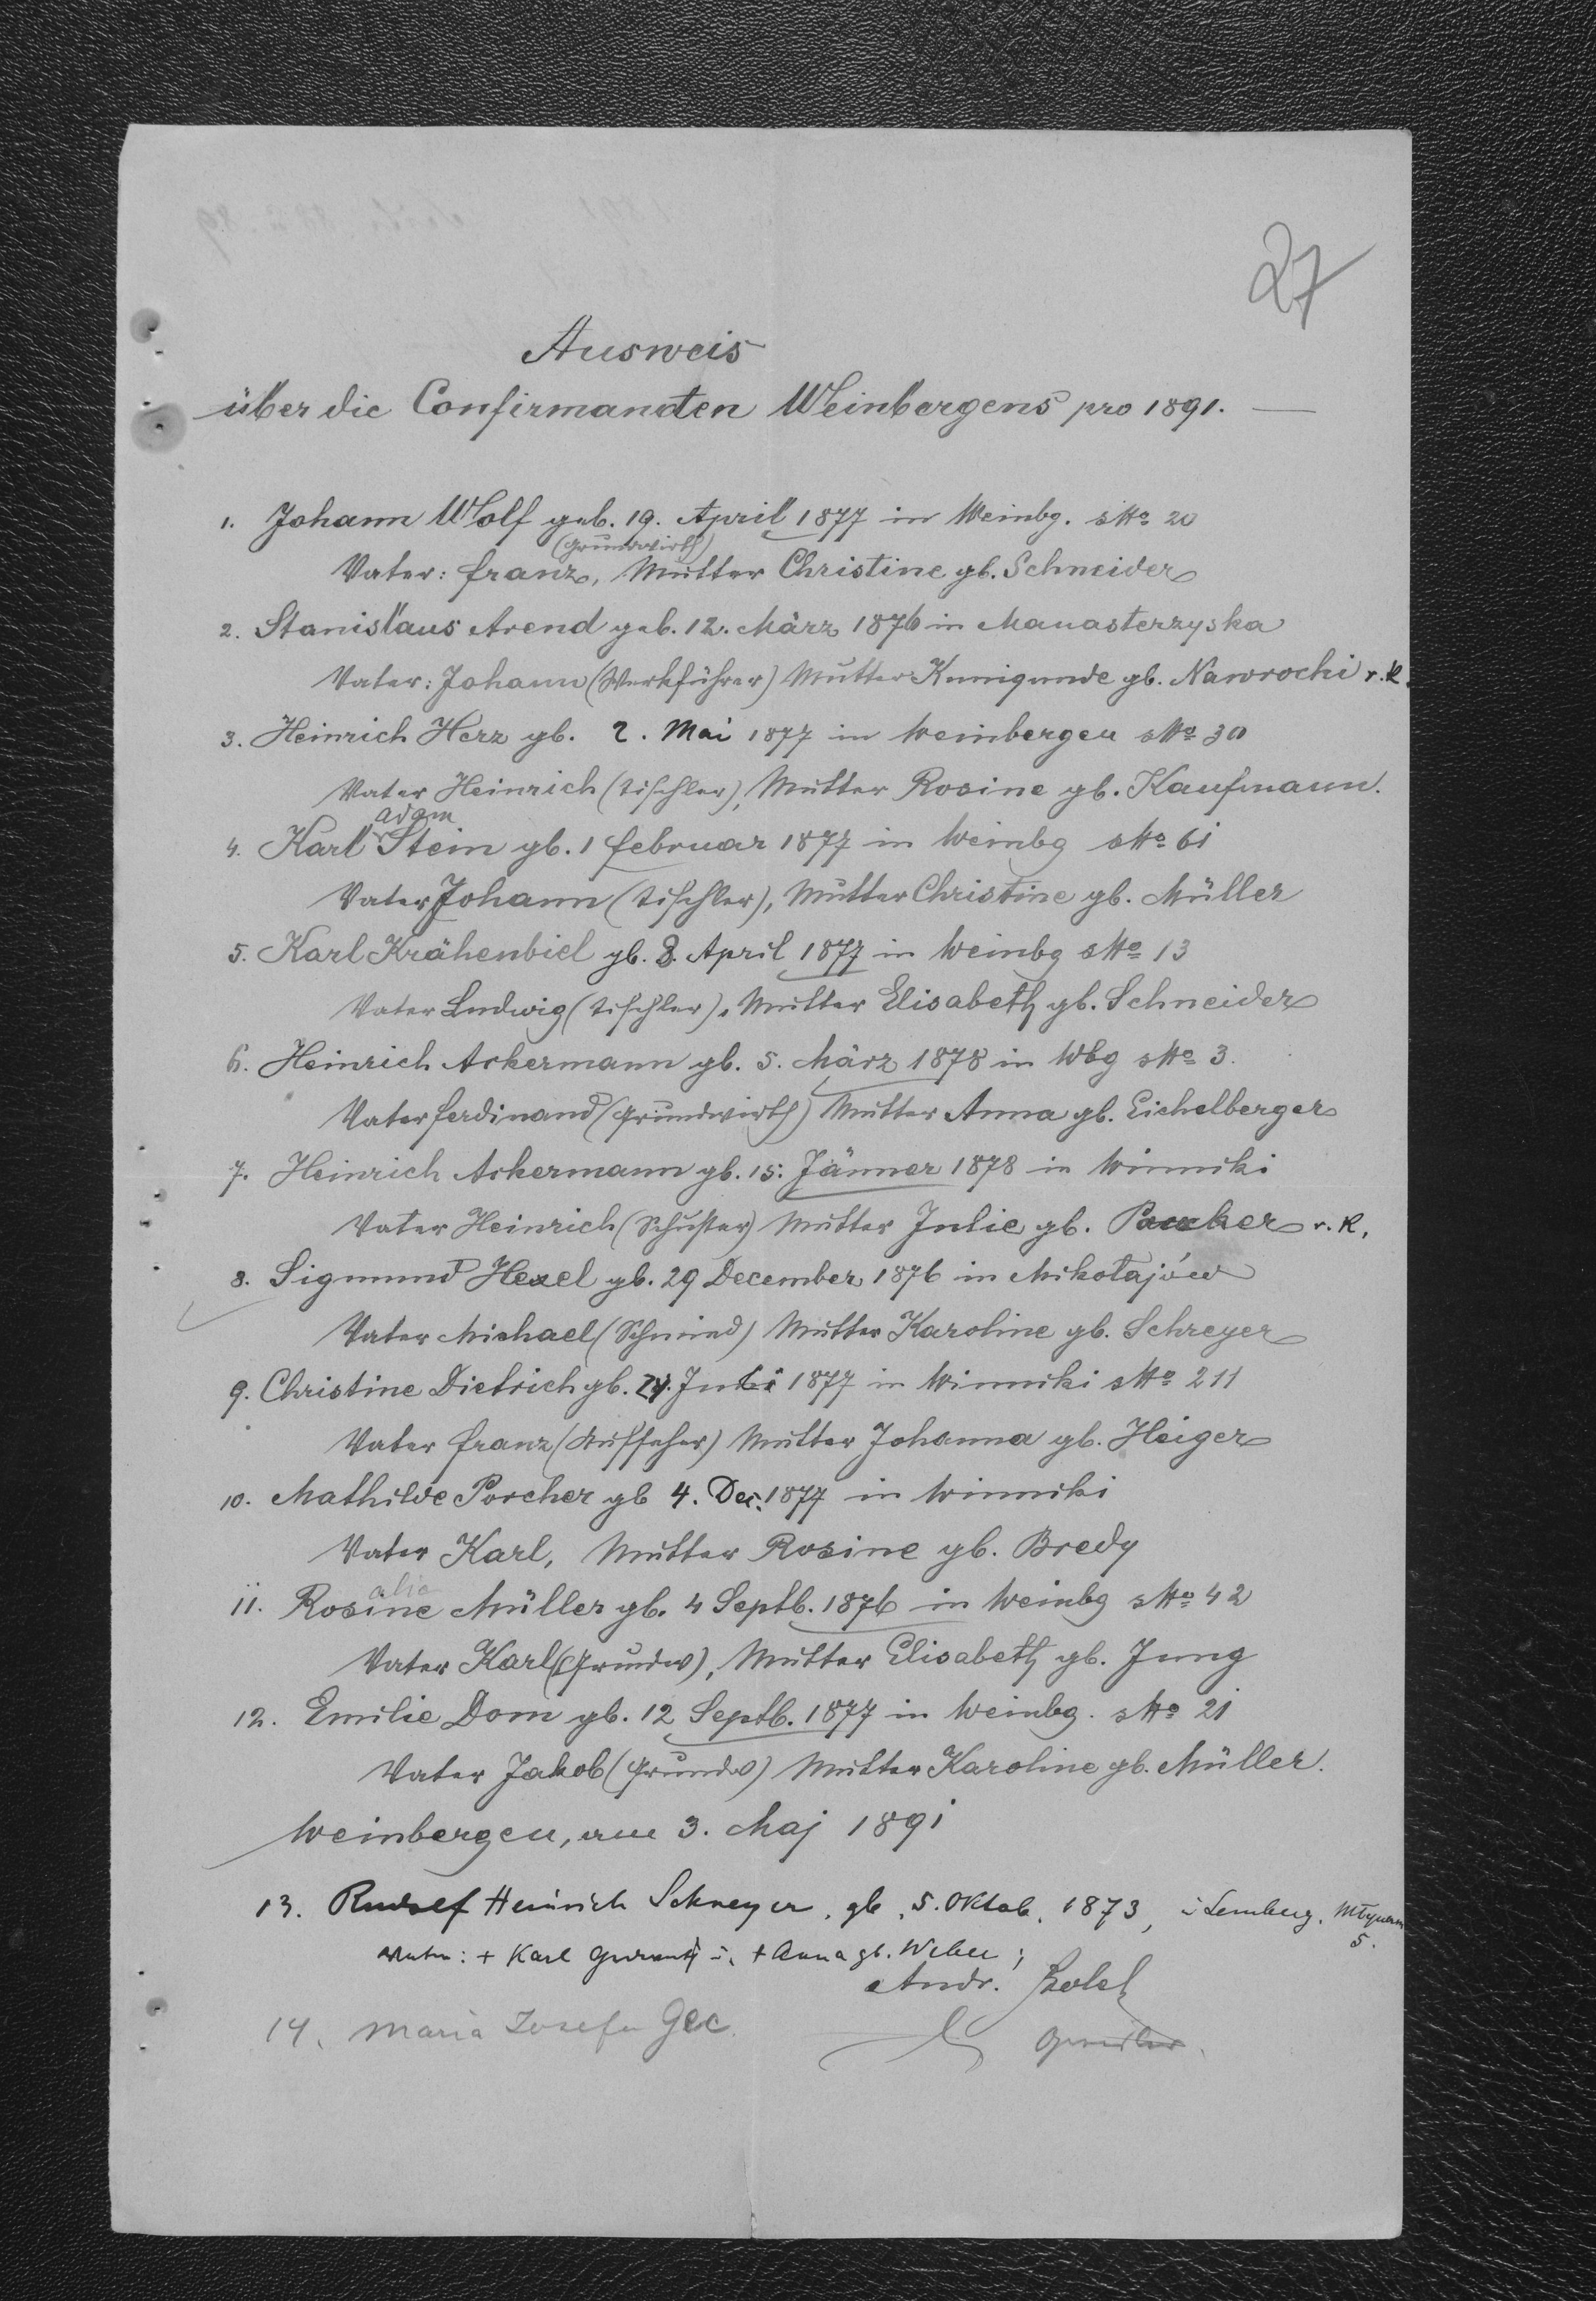 27
Ausweis
über die Confirmanden Weinbergens pro 1891. —
1. Johann Wolf geb. 19. April 1877 in Weinbg. sNo 20
(Grundwirth)
Vater: Franz, Mutter Christine gb. Schneider
2. Stanislaus Arend geb. 12. März 1876 in Manasterzyska
Vater: Johann (Werkführer) Mutter Kunigunde gb. Nawrocki r.k.
3. Heinrich Herz gb. 2. Mai 1877 in Weinbergen sNo 30
Vater Heinrich (Tischler), Mutter Rosine gb. Kaufmann.
adam
4. Karl Stein gb. 1 Februar 1877 in Weinbg sNo 61
Vater Johann (Tischler), Mutter Christine gb. Müller
5. Karl Krähenbiel gb. 8. April 1877 in Weinbg sNo 13
Vater Ludwig (Tischler), Mutter Elisabeth gb. Schneider
6. Heinrich Ackermann gb. 5. März 1878 in Wbg sNo 3.
Vater Ferdinand (Grundwirth) Mutter Anna gb. Eichelberger
7. Heinrich Ackermann gb. 15. Jänner 1878 in Winniki
Vater Heinrich (Schuster) Mutter Julie gb. r.k.
8. Sigmund Hexel gb. 29 December 1876 in Mikołajów
Vater Michael (Schmied) Mutter Karoline gb. Schreyer
9. Christine Dietrich gb. 1877 in Winniki sNo 211
Vater Franz (Aufseher) Mutter Johanna gb. Heiger
10. Mathilde Porcher gb 4. Dec. 1877 in Winniki
Vater Karl, Mutter Rosine gb. Bredy
alia
11. Rosine Müller gb. 4 Septb. 1876 in Weinbg sNo 42
Vater Karl (Grundw), Mutter Elisabeth gb. Jung
12. Emilie Dom gb. 12 Septb. 1877 in Weinbg. sNo 21
Vater Jakob (Grundw) Mutter Karoline gb. Müller.
Weinbergen, am 3. Maj 1891
13. Rudolf Heinrich Schreyer, gb. 5. Oktob. 1873, i Lemberg,
5.
Vater: + Karl u. + Anna gb. Weber;
Andr.
14. Maria Josefa Gec.